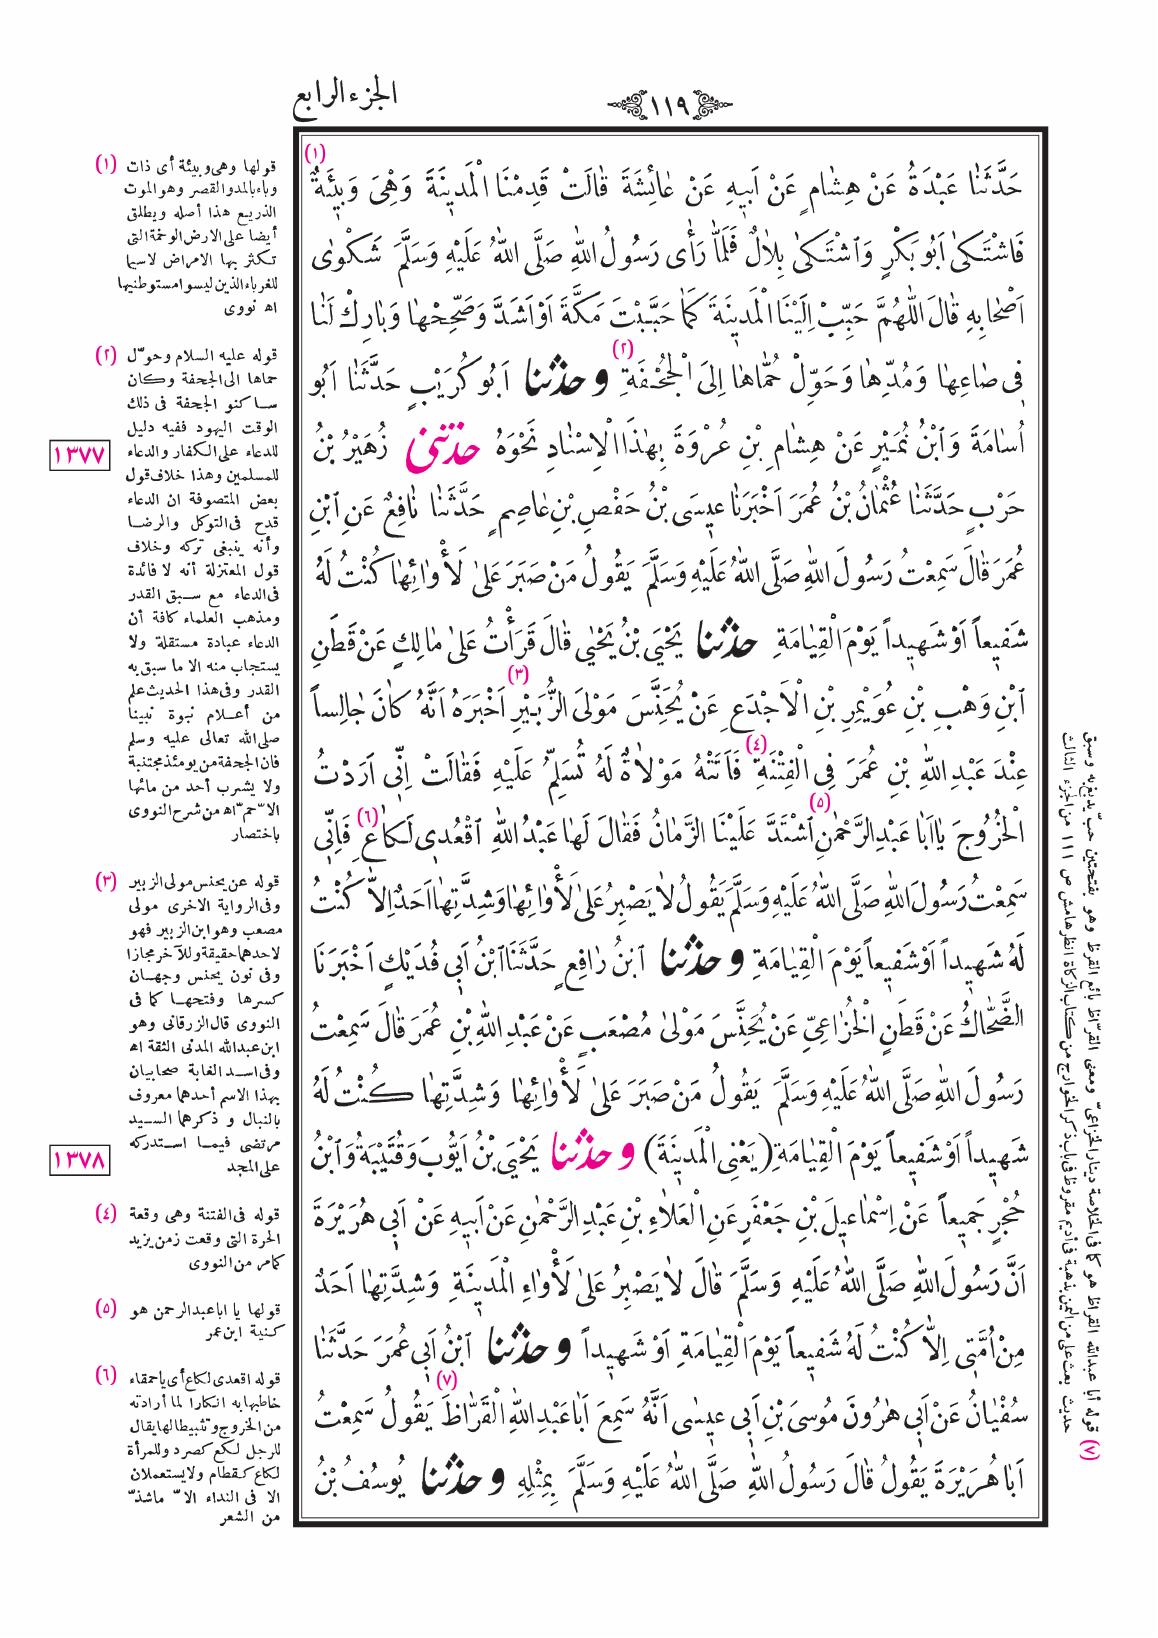 الجزء الرابع
١١٩
حَدَّثَنَا عَبْدَةُ عَنْ هِشَامٍ عَنْ أَبِيهِ عَنْ عَائِشَةَ قَالَتْ قَدِمْنَا الْمَدِينَةَ وَهْيَ وَبِيئَةٌ (١)
فَاشْتَكَى أَبُو بَكْرٍ وَاشْتَكَى بِلَالٌ فَلَمَّا رَأَى رَسُولُ اللّٰهِ صَلَّى اللّٰهُ عَلَيْهِ وَسَلَّمَ شَكْوَى
أَصْحَابِهِ قَالَ اللّٰهُمَّ حَبِّبْ إِلَيْنَا الْمَدِينَةَ كَمَا حَبَّبْتَ مَكَّةَ أَوْ أَشَدَّ وَصَحِّحْهَا وَبَارِكْ لَنَا
فِي صَاعِهَا وَمُدِّهَا وَحَوِّلْ حُمَّاهَا إِلَى الْجُحْفَةِ (٢) وحدثنا أَبُو كُرَيْبٍ حَدَّثَنَا أَبُو
أُسَامَةَ وَابْنُ نُمَيْرٍ عَنْ هِشَامِ بْنِ عُرْوَةَ بِهٰذَا الْإِسْنَادِ نَحْوَهُ حدثني زُهَيْرُ بْنُ
حَرْبٍ حَدَّثَنَا عُثْمَانُ بْنُ عُمَرَ أَخْبَرَنَا عِيسَى بْنُ حَفْصِ بْنِ عَاصِمٍ حَدَّثَنَا نَافِعٌ عَنِ ابْنِ
عُمَرَ قَالَ سَمِعْتُ رَسُولَ اللّٰهِ صَلَّى اللّٰهُ عَلَيْهِ وَسَلَّمَ يَقُولُ مَنْ صَبَرَ عَلَى لَأْوَائِهَا كُنْتُ لَهُ
شَفِيعاً أَوْ شَهِيداً يَوْمَ الْقِيَامَةِ حدثنا يَحْيَى بْنُ يَحْيَى قَالَ قَرَأْتُ عَلَى مَالِكٍ عَنْ قَطَنِ
ابْنِ وَهْبِ بْنِ عُوَيْمِرِ بْنِ الْأَجْدَعِ عَنْ يُحَنِّسَ مَوْلَى الزُّبَيْرِ (٣) أَخْبَرَهُ أَنَّهُ كَانَ جَالِساً
عِنْدَ عَبْدِ اللّٰهِ بْنِ عُمَرَ فِي الْفِتْنَةِ (٤) فَأَتَتْهُ مَوْلَاةٌ لَهُ تُسَلِّمُ عَلَيْهِ فَقَالَتْ إِنِّي أَرَدْتُ
الْخُرُوجَ يَا أَبَا عَبْدِ الرَّحْمٰنِ (٥) اشْتَدَّ عَلَيْنَا الزَّمَانُ فَقَالَ لَهَا عَبْدُ اللّٰهِ اقْعُدِي لَكَاعِ (٦) فَإِنِّي
سَمِعْتُ رَسُولَ اللّٰهِ صَلَّى اللّٰهُ عَلَيْهِ وَسَلَّمَ يَقُولُ لَا يَصْبِرُ عَلَى لَأْوَائِهَا وَشِدَّتِهَا أَحَدٌ إِلَّا كُنْتُ
لَهُ شَهِيداً أَوْ شَفِيعاً يَوْمَ الْقِيَامَةِ وحدثنا ابْنُ رَافِعٍ حَدَّثَنَا ابْنُ أَبِي فُدَيْكٍ أَخْبَرَنَا
الضَّحَّاكُ عَنْ قَطَنٍ الْخُزَاعِيِّ عَنْ يُحَنِّسَ مَوْلَى مُصْعَبٍ عَنْ عَبْدِ اللّٰهِ بْنِ عُمَرَ قَالَ سَمِعْتُ
رَسُولَ اللّٰهِ صَلَّى اللّٰهُ عَلَيْهِ وَسَلَّمَ يَقُولُ مَنْ صَبَرَ عَلَى لَأْوَائِهَا وَشِدَّتِهَا كُنْتُ لَهُ
شَهِيداً أَوْ شَفِيعاً يَوْمَ الْقِيَامَةِ (يَعْنِي الْمَدِينَةَ) وحدثنا يَحْيَى بْنُ أَيُّوبَ وَقُتَيْبَةُ وَابْنُ
حُجْرٍ جَمِيعاً عَنْ إِسْمَاعِيلَ بْنِ جَعْفَرٍ عَنِ الْعَلَاءِ بْنِ عَبْدِ الرَّحْمٰنِ عَنْ أَبِيهِ عَنْ أَبِي هُرَيْرَةَ
أَنَّ رَسُولَ اللّٰهِ صَلَّى اللّٰهُ عَلَيْهِ وَسَلَّمَ قَالَ لَا يَصْبِرُ عَلَى لَأْوَاءِ الْمَدِينَةِ وَشِدَّتِهَا أَحَدٌ
مِنْ أُمَّتِي إِلَّا كُنْتُ لَهُ شَفِيعاً يَوْمَ الْقِيَامَةِ أَوْ شَهِيداً وحدثنا ابْنُ أَبِي عُمَرَ حَدَّثَنَا
سُفْيَانُ عَنْ أَبِي هَارُونَ مُوسَى بْنِ أَبِي عِيسَى أَنَّهُ سَمِعَ أَبَا عَبْدِ اللّٰهِ الْقَرَّاظَ (٧) يَقُولُ سَمِعْتُ
أَبَا هُرَيْرَةَ يَقُولُ قَالَ رَسُولُ اللّٰهِ صَلَّى اللّٰهُ عَلَيْهِ وَسَلَّمَ بِمِثْلِهِ وحدثنا يُوسُفُ بْنُ
(١) قولها وهى وبيئة أى ذات
وباء بالمد والقصر وهو الموت
الذريع هذا أصله ويطلق
أيضا على الارض الوخمة التى
تكثر بها الامراض لاسيما
للغرباء الذين ليسوا مستوطنيها
اه نووى
(٢) قوله عليه السلام وحوّل
حماها الى الجحفة وكان
ساكنو الجحفة فى ذلك
الوقت اليهود ففيه دليل
للدعاء على الكفار والدعاء
للمسلمين وهذا خلاف قول
بعض المتصوفة ان الدعاء
قدح فى التوكل والرضا
وأنه ينبغى تركه وخلاف
قول المعتزلة أنه لا فائدة
فى الدعاء مع سبق القدر
ومذهب العلماء كافة أن
الدعاء عبادة مستقلة ولا
يستجاب منه الا ما سبق به
القدر وفى هذا الحديث علم
من أعلام نبوة نبينا
صلى الله تعالى عليه وسلم
فان الجحفة من يومئذ مجتنبة
ولا يشرب أحد من مائها
الا حمّ اه من شرح النووى
باختصار
(٣) قوله عن يحنس مولى الزبير
وفى الرواية الاخرى مولى
مصعب وهو ابن الزبير فهو
لاحدهما حقيقة وللآخر مجازا
وفى نون يحنس وجهان
كسرها وفتحها كما فى
النووى قال الزرقانى وهو
ابن عبدالله المدنى الثقة اه
وفى اسد الغابة صحابيان
بهذا الاسم أحدهما معروف
بالنبال وذكرهما السيد
مرتضى فيما استدركه
على المجد
(٤) قوله فى الفتنة وهى وقعة
الحرة التى وقعت زمن يزيد
كمامر من النووى
(٥) قولها يا اباعبدالرحمن هو
كنية ابن عمر
(٦) قوله اقعدى لكاع أى ياحمقاء
خاطبها به انكارا لما أرادته
من الخروج وتثبيطا لها يقال
للرجل لكع كصرد وللمرأة
لكاع كقطام ولا يستعملان
الا فى النداء الا ما شذّ
من الشعر
١٣٧٧
١٣٧٨
(٧) قوله أبا عبدالله القراظ هو كما فى الخلاصة دينار الخزاعىّ ومعنى القرّاظ بائع القرظ وهو بفتحتين حبّ يدبغ به وسبق
حديث بعث على من اليمن بذهبة فى أديم مقروظ فى باب ذكر الخوارج من كتاب الزكاة انظر هامش ص ١١١ من الجزء الثالث